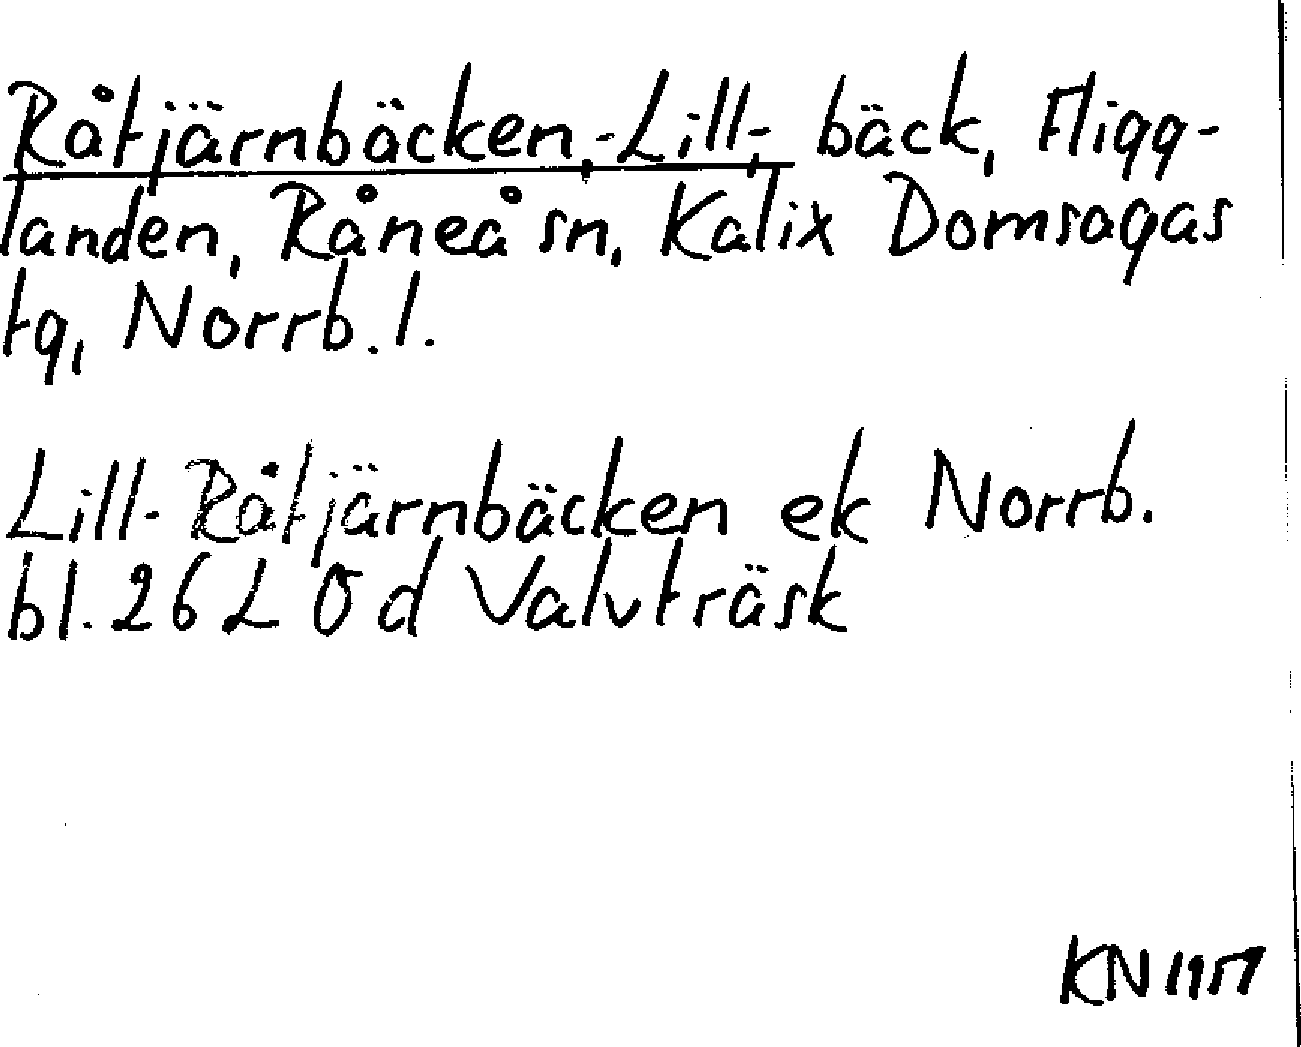 Råtjärnbäcken,-Lill-, bäck, Fligg-
landen, Råneå sn, Kalix Domsagas
tg, Norrb. l.
Lill-Råtjärnbäcken ek Norrb.
bl. 26 L 0 d Valvträsk
KN